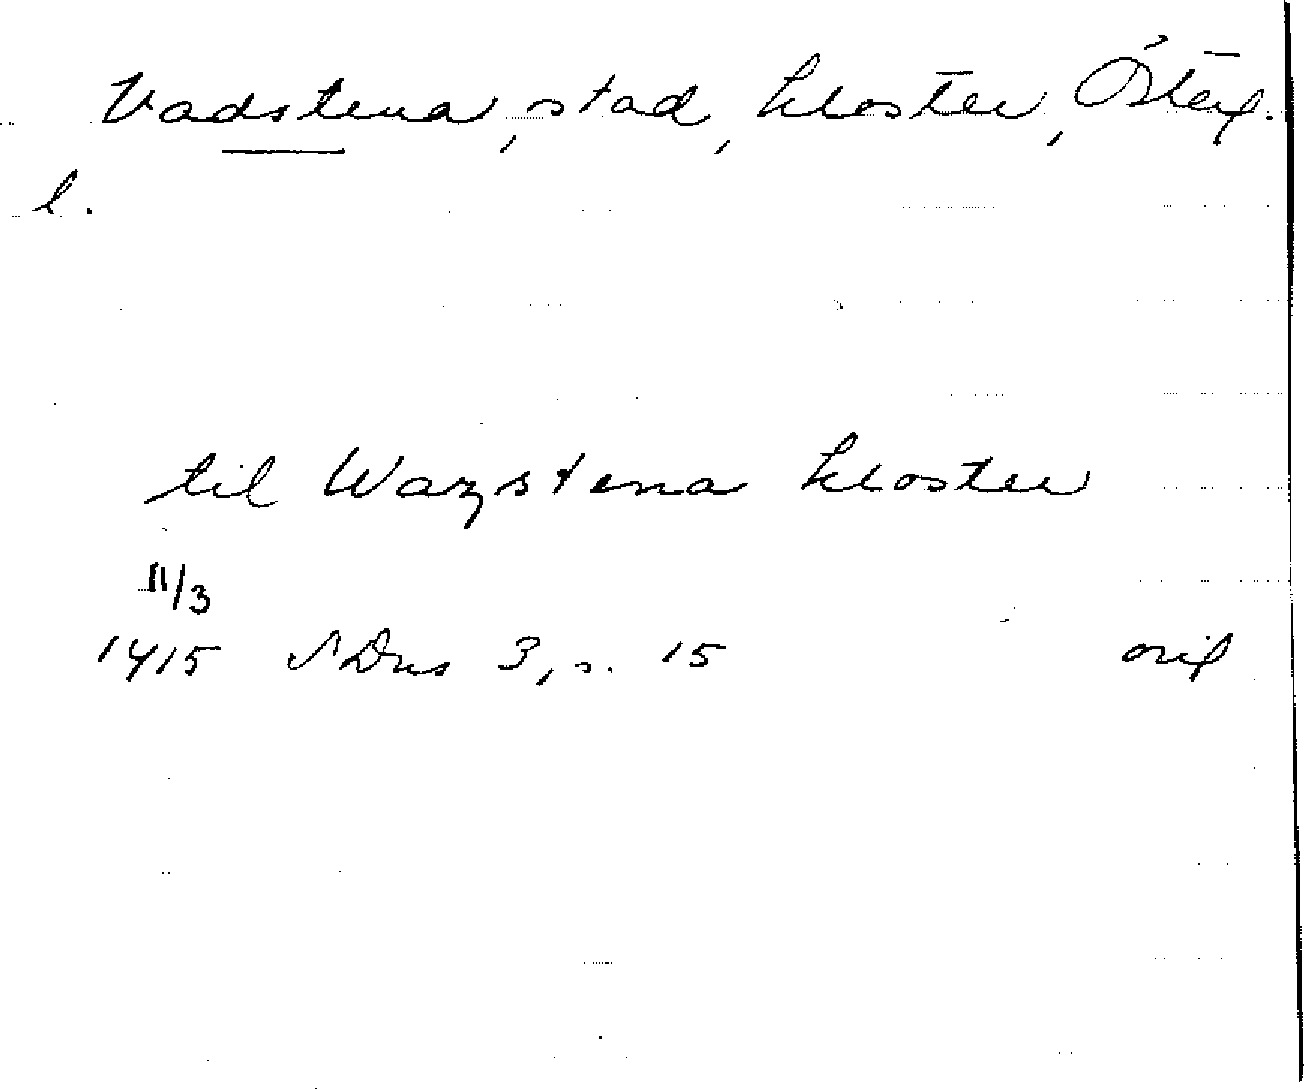 Vadstena, stad, kloster, Österg.
l.
til Wazstena kloster
11/3
1415 SDns 3, s. 15 orig